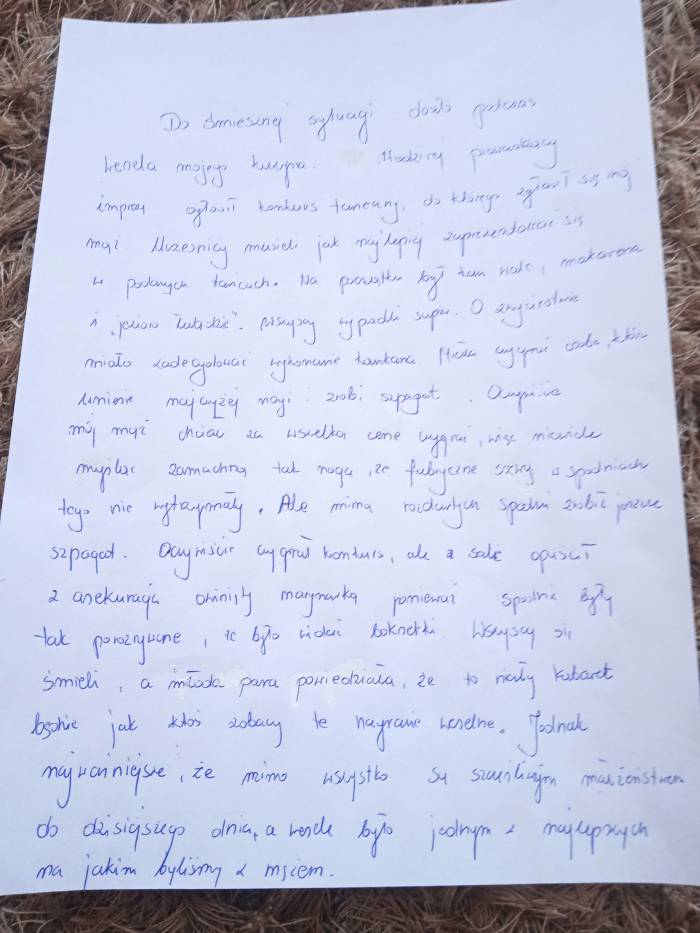 Do śmiesznej sytuacji doszło podczas
wesela mojego kuzyna. Młodzież prowadzący
imprezę ogłosił konkurs taneczny, do którego zgłosił się mój
mąż. Uczesnicy musieli jak najlepiej zaprezentować się
w podanych tańcach. Na początku był tam walc, makarena
i "jezioro łabędzie". Wszyscy wypadli super. O zwycięstwie
miało zadecydować wykonanie kankana. Miała wygrać osoba, która
umienie najwyżej nogi zrobi szpagat. Oczywiście
mój mąż chciał za wszelka cene wygrać, więc niewiele
myśląc zamachną tak nogą, że fabryczne szwy w spodniach
tego nie wytrzymały. Ale mimo rozdartych spodni zrobił jeszcze
szpagat. Oczywiście wygrał konkurs, ale z sali opuścił
z asekuracją owinięty marynarką ponieważ spodnie były
tak porozrywane, że było widać bokserki. Wszyscy się
śmieli, a młoda para powiedziała, że to niezły kabaret
będzie jak ktoś zobaczy te nagranie weselne. Jednak
najważniejsze, że mimo wszystko są szczęśliwym małżeństwem
do dzisiejszego dnia, a wesele było jednym z najlepszych
na jakim byliśmy z mężem.